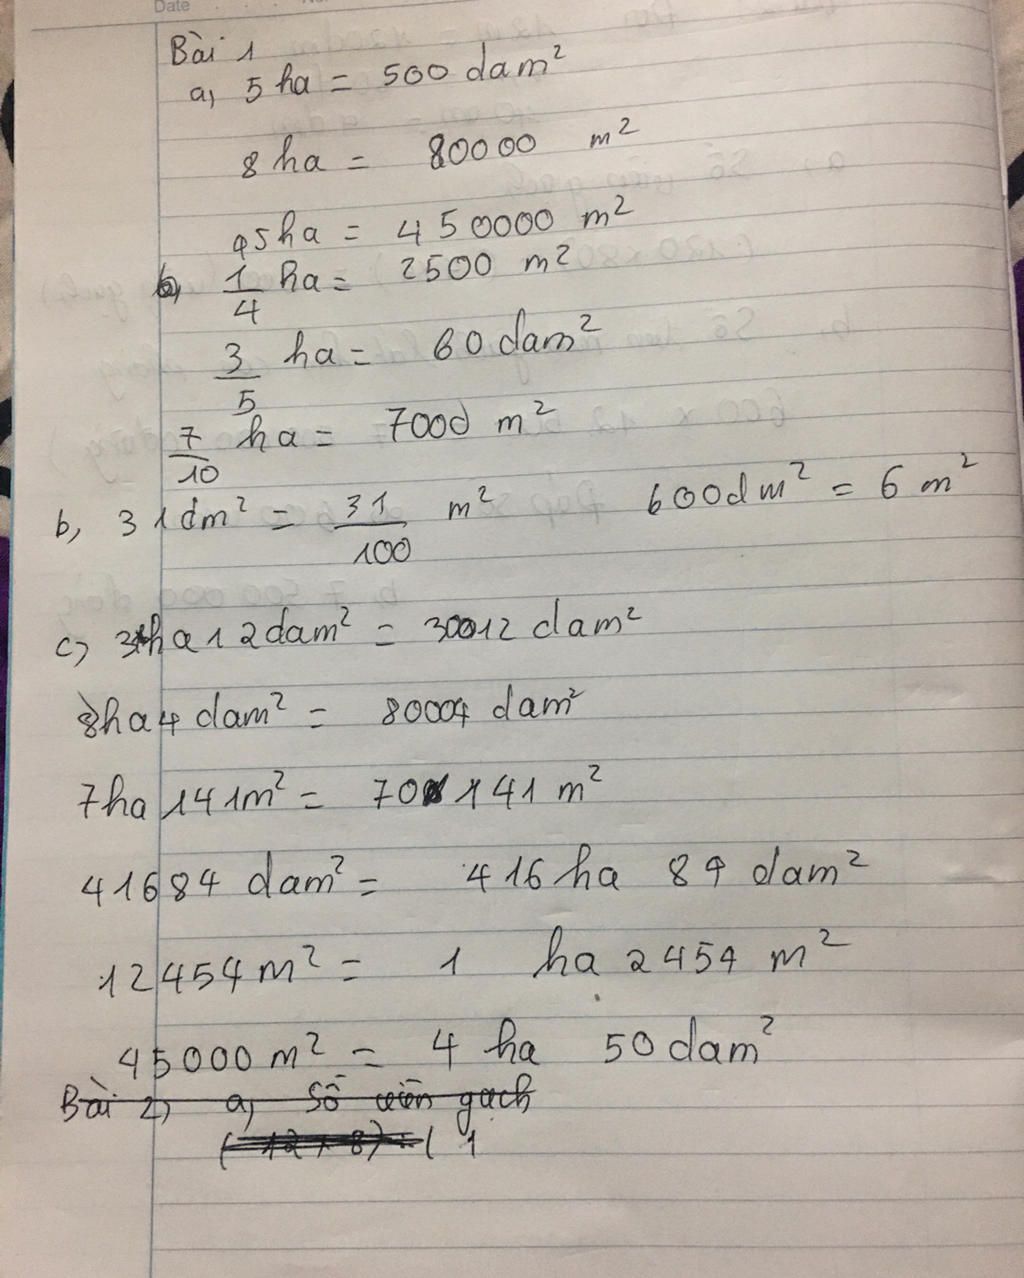 Date
Bài 1
a, 5 ha = 500 dam²
8 ha = 80000 m²
45ha = 450000 m²
b, 1/4 ha = 2500 m²
3/5 ha = 60 dam²
7/10 ha = 7000 m²
b, 31dm² = 31/100 m² 600dm² = 6 m²
c, 3ha12dam² = 30012 dam²
8ha4 dam² = 80004 dam²
7ha 141m² = 70141 m²
41684 dam² = 416 ha 84 dam²
12454m² = 1 ha 2454 m²
45000m² = 4 ha 50 dam²
Bài 2, a, Số viên gạch
(12 + 8) = ( 1